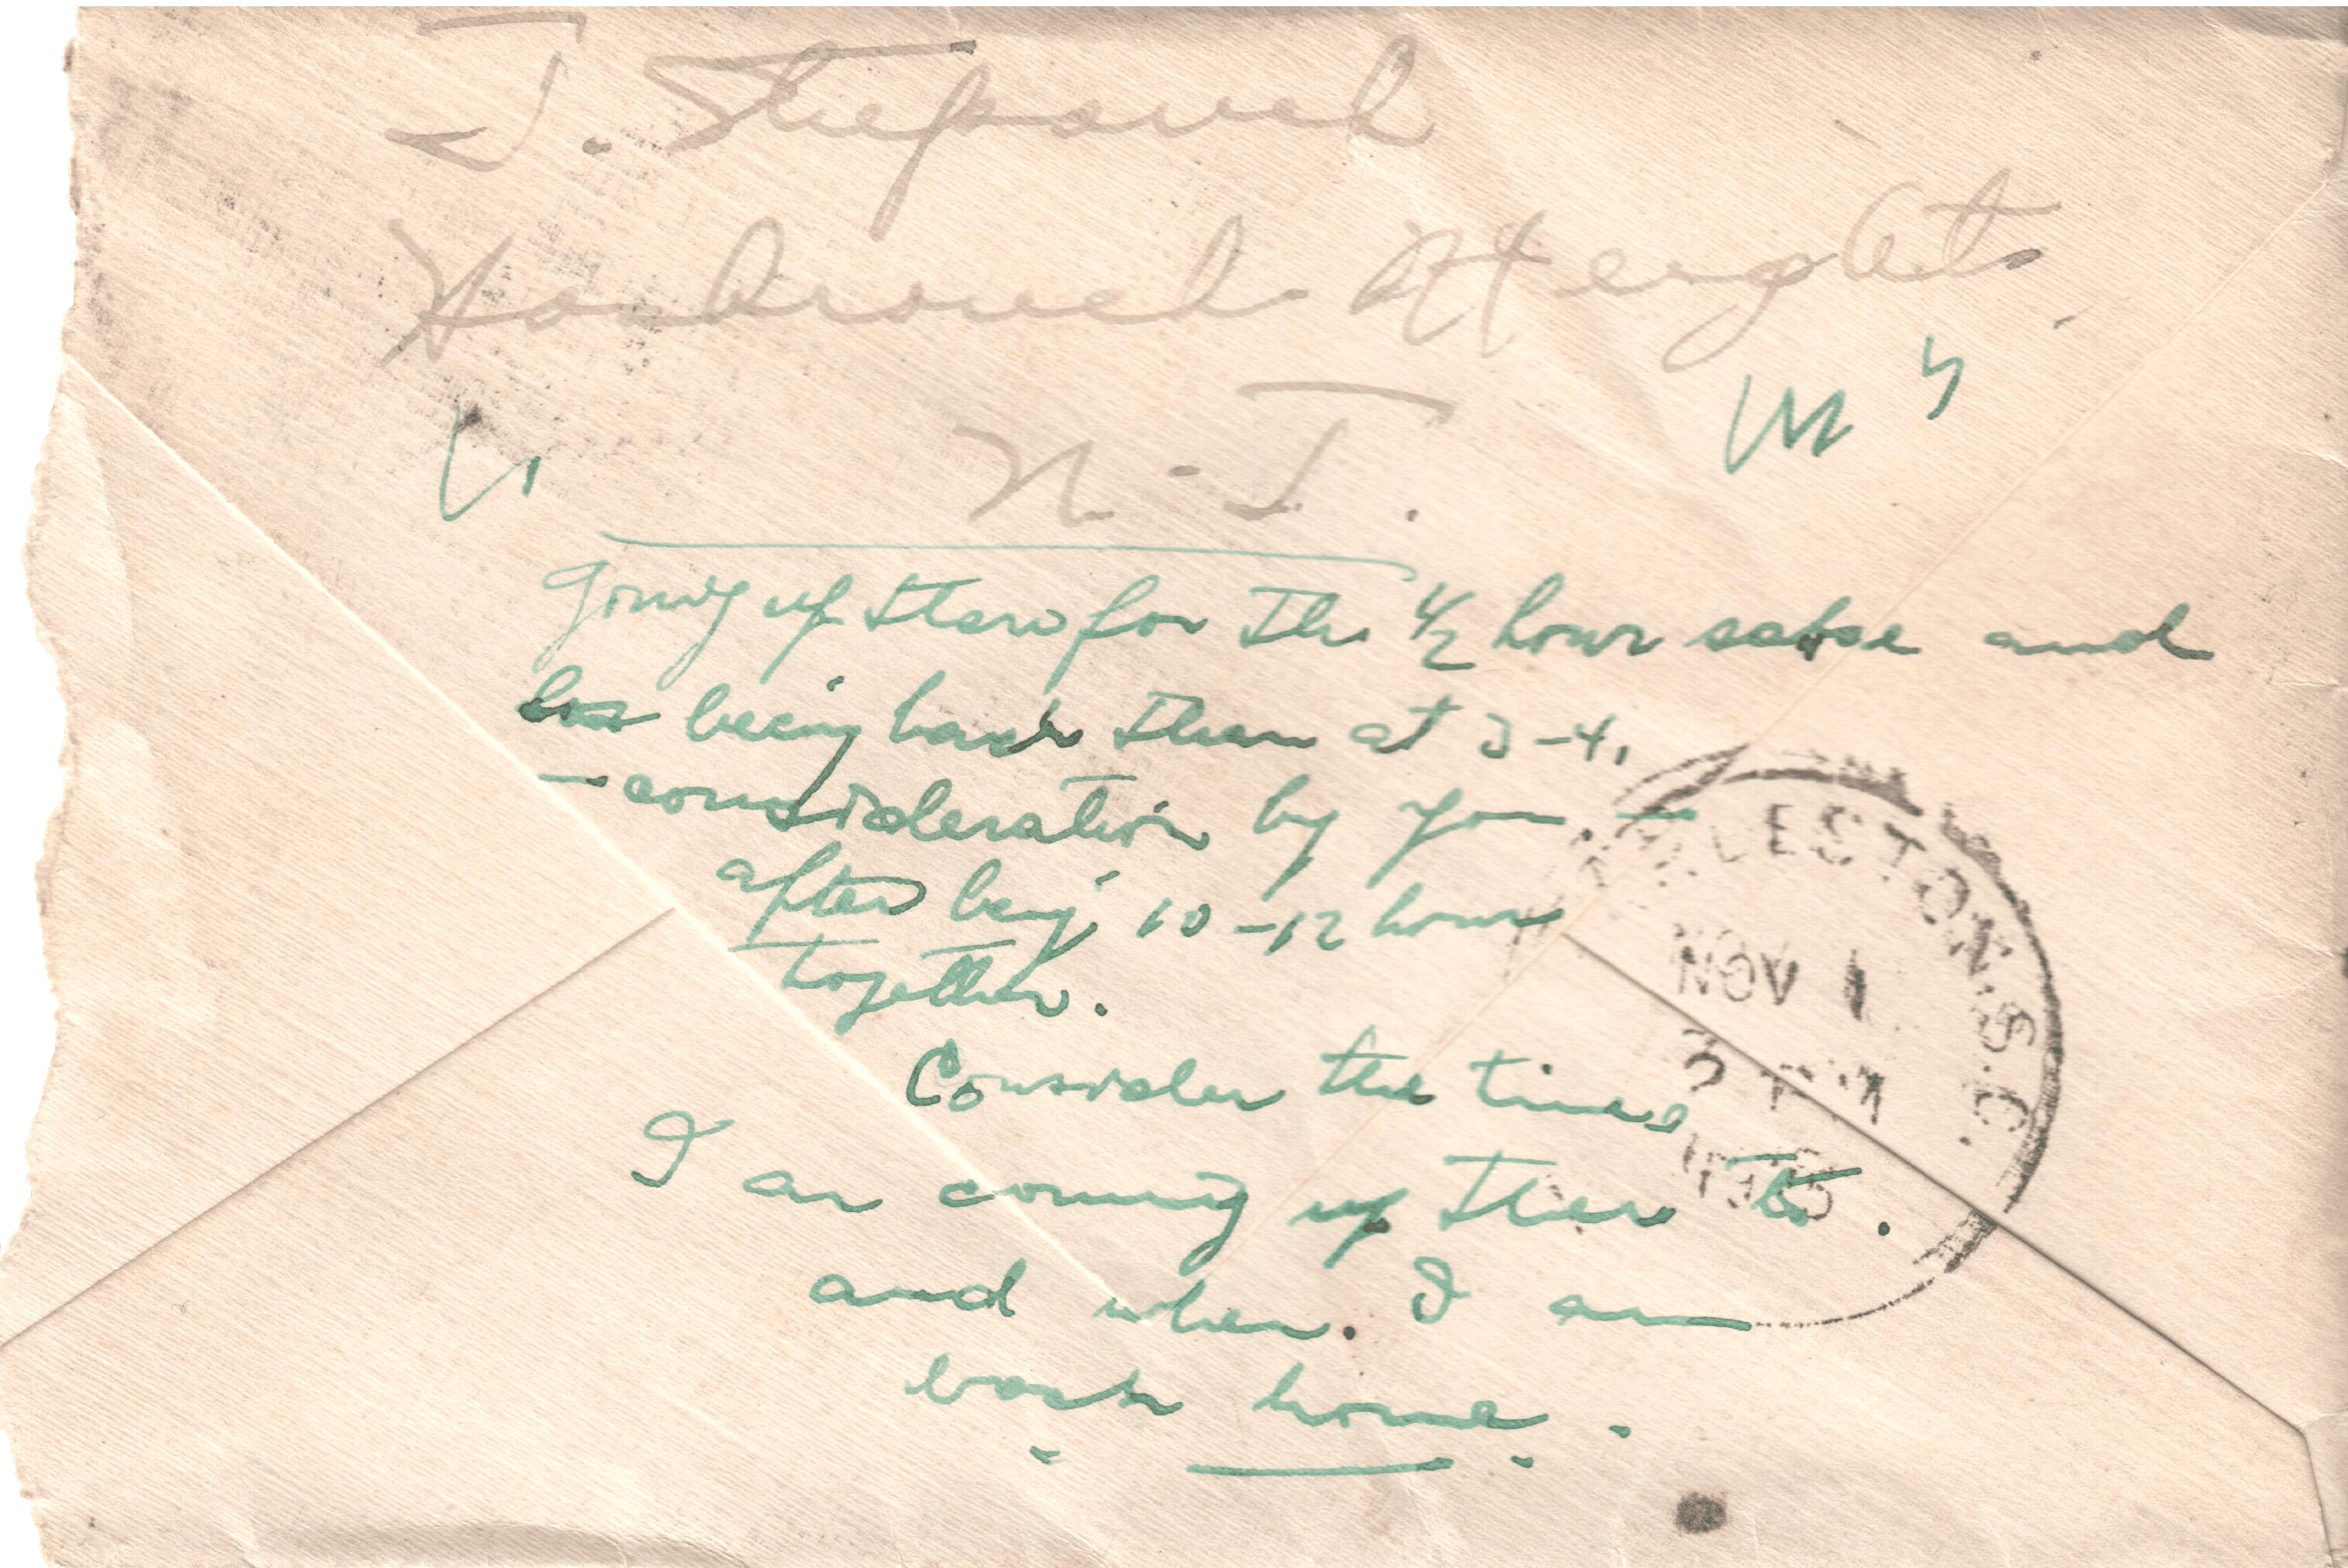 J. Stepanek
Hasbrouck Heights,
N. J.
going up there for the 1/2 hour sake and
being back then at 3-4,
— consideration by you —
after being 10-12 hours
together.
Consider the times
I am coming up there to.
and when. I am
back home.
CHARLESTON, S.C.
NOV 1
3 PM